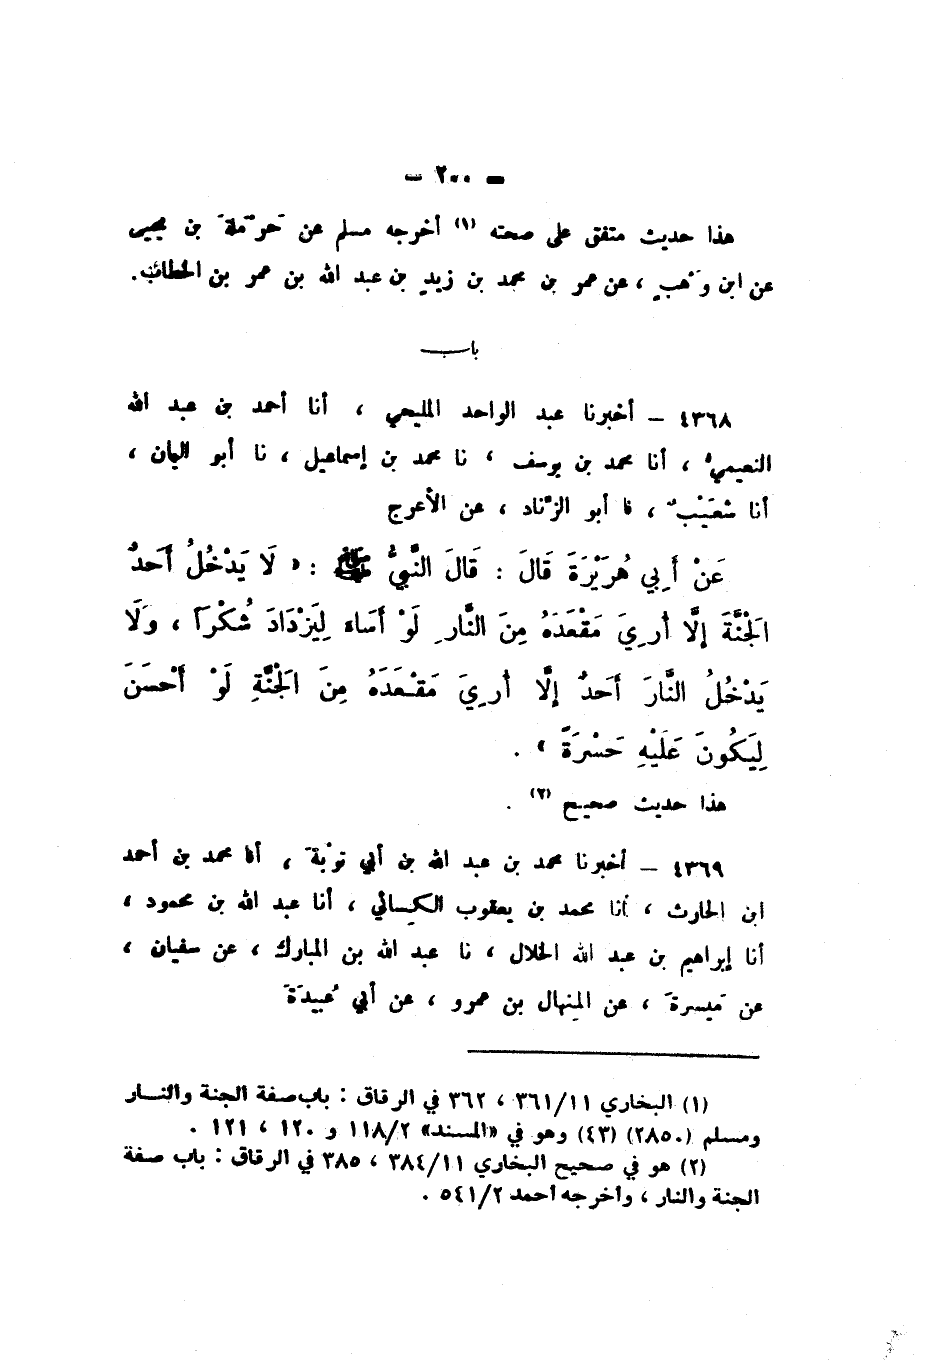 – ٢٠٠ –
هذا حديث متفق على صحته (١) أخرجه مسلم عن حَرْمَلةَ بن يحيى
عن ابن وَهْبٍ ، عن عمر بن محمد بن زيدٍ بن عبد الله بن عمر بن الخطاب.
باب
٤٣٦٨ – أخبرنا عبد الواحد المليحي ، أنا أحمد بن عبد الله
النعيميُّ ، أنا محمد بن يوسف ، نا محمد بن إسماعيل ، نا أبو اليمان ،
أنا شُعَيْبٌ ، نا أبو الزِّناد ، عن الأعرج
عَنْ أَبِي هُرَيْرَةَ قَالَ : قَالَ النَّبِيُّ ﷺ : « لَا يَدْخُلُ أَحَدٌ
الجَنَّةَ إِلَّا أُرِيَ مَقْعَدَهُ مِنَ النَّارِ لَوْ أَسَاءَ لِيَزْدَادَ شُكْراً ، وَلَا
يَدْخُلُ النَّارَ أَحَدٌ إِلَّا أُرِيَ مَقْعَدَهُ مِنَ الجَنَّةِ لَوْ أَحْسَنَ
لِيَكُونَ عَلَيْهِ حَسْرَةً » .
هذا حديث صحيح (٢) .
٤٣٦٩ – أخبرنا محمد بن عبد الله بن أبي توْبةَ ، أنا محمد بن أحمد
ابن الحارث ، أنا محمد بن يعقوب الكسائي ، أنا عبد الله بن محمود ،
أنا إبراهيم بن عبد الله الخلال ، نا عبد الله بن المبارك ، عن سفيان ،
عن مَيسرةَ ، عن المنهال بن عمرو ، عن أبي عُبيدَةَ
(١) البخاري ٣٦١/١١ ، ٣٦٢ في الرقاق : باب صفة الجنة والنار
ومسلم (٢٨٥٠) (٤٣) وهو في «المسند» ١١٨/٢ و ١٢٠ ، ١٢١ .
(٢) هو في صحيح البخاري ٣٨٤/١١ ، ٣٨٥ في الرقاق : باب صفة
الجنة والنار ، وأخرجه أحمد ٥٤١/٢ .